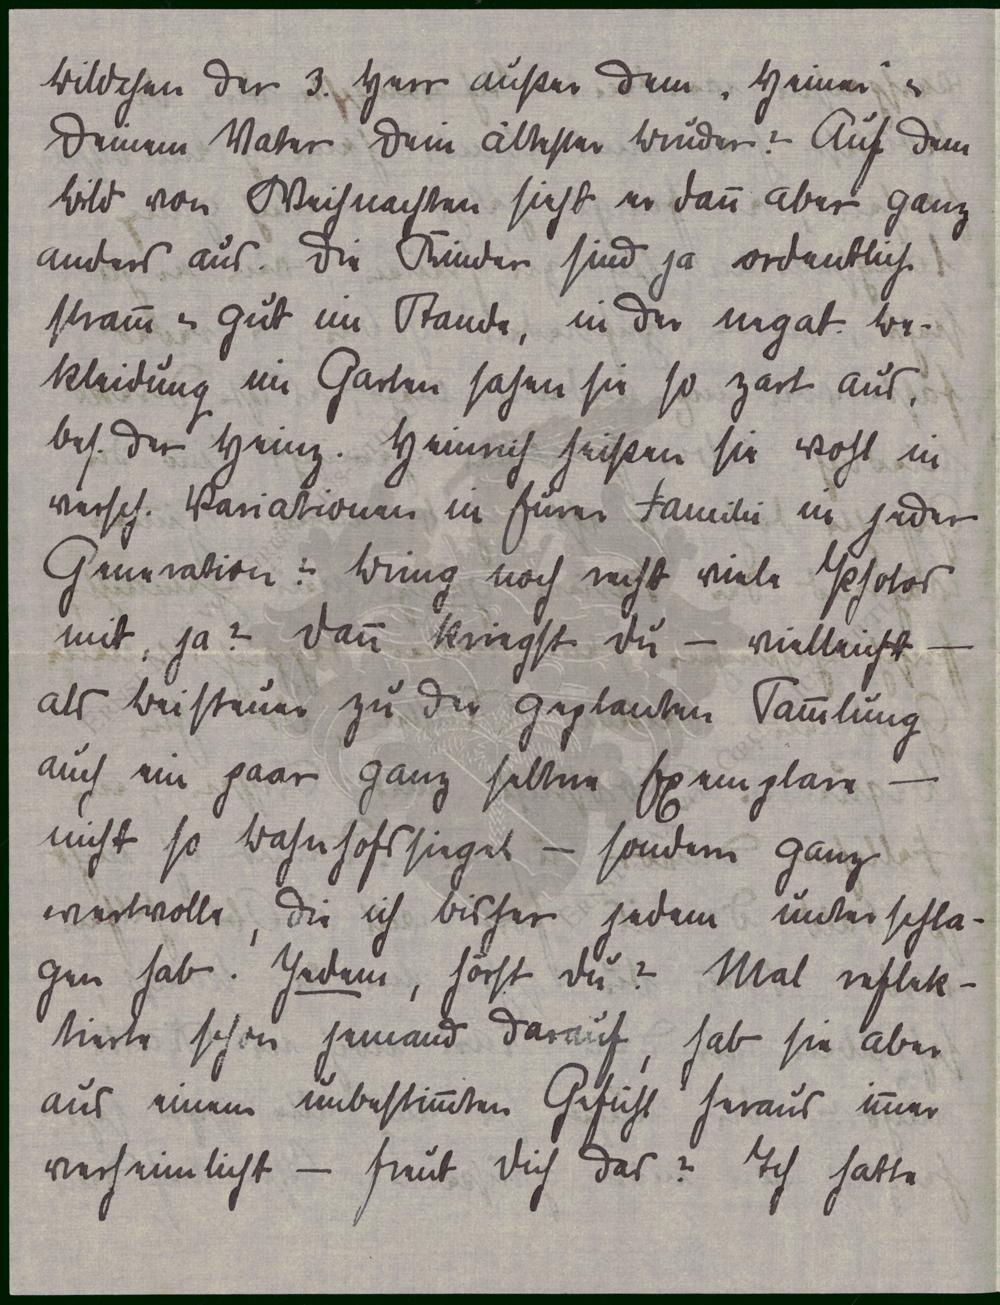 Bildchen der 3. Herr außer dem „Heiner“ u.
Deinem Vater Dein ältester Bruder? Auf dem
Bild von Weihnachten sieht er dañ aber ganz
anders aus. Die Kinder sind ja ordentlich
stram̄ u. gut im Stande, in der negat. Be-
kleidung im Garten sahen sie so zart aus,
bes. der Heinz. Heinrich heißen sie wohl in
versch. Variationen in Eurer Familie in jeder
Generation? Bring noch recht viele Photos
mit, ja? Dañ kriegst Du – vielleicht –
als Beisteuer zu der geplanten Sam̄lung
auch ein paar ganz seltne Exemplare –
nicht so Bahnhofssiegel – sondern ganz
wertvolle, die ich bisher jedem unterschla-
gen hab. Jedem, hörst Du? Mal reflek-
tierte schon jemand darauf, hab sie aber
aus einem unbestim̄ten Gefühl heraus im̄er
verheimlicht – freut Dich das? Ich hatte